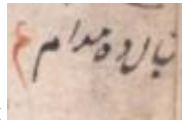 نیالوده مدام